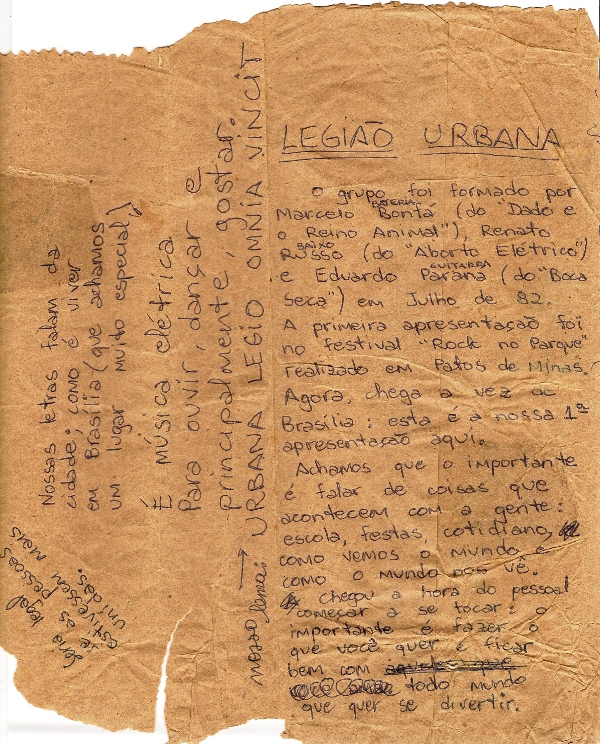 LEGIÃO URBANA
O grupo foi formado por
BATERIA
Marcelo Bonfá (do "Dado e
o Reino Animal"), Renato
BAIXO
RUSSO (do "Aborto Elétrico")
GUITARRA
e Eduardo Paraná (do "Boca
Seca") em Julho de 82.
A primeira apresentação foi
no festival "Rock no Parque"
realizado em Patos de Minas.
Agora, chega a vez de
Brasília: esta é a nossa 1ª
apresentação aqui.
Achamos que o importante
é falar de coisas que
acontecem com a gente:
escola, festas, cotidiano,
como vemos o mundo e
como o mundo nos vê.
chegou a hora do pessoal
começar a se tocar: o
importante é fazer o
que você quer e ficar
bem com aqueles que
todo mundo
que quer se divertir.
Nossas letras falam da
cidade; como é viver
em Brasília (que achamos
um lugar muito especial)
É música elétrica
Para ouvir, dançar e
principalmente, gostar.
nosso lema: → URBANA LEGIO OMNIA VINCIT
Seria legal
se as pessoas
estivessem mais
unidas.